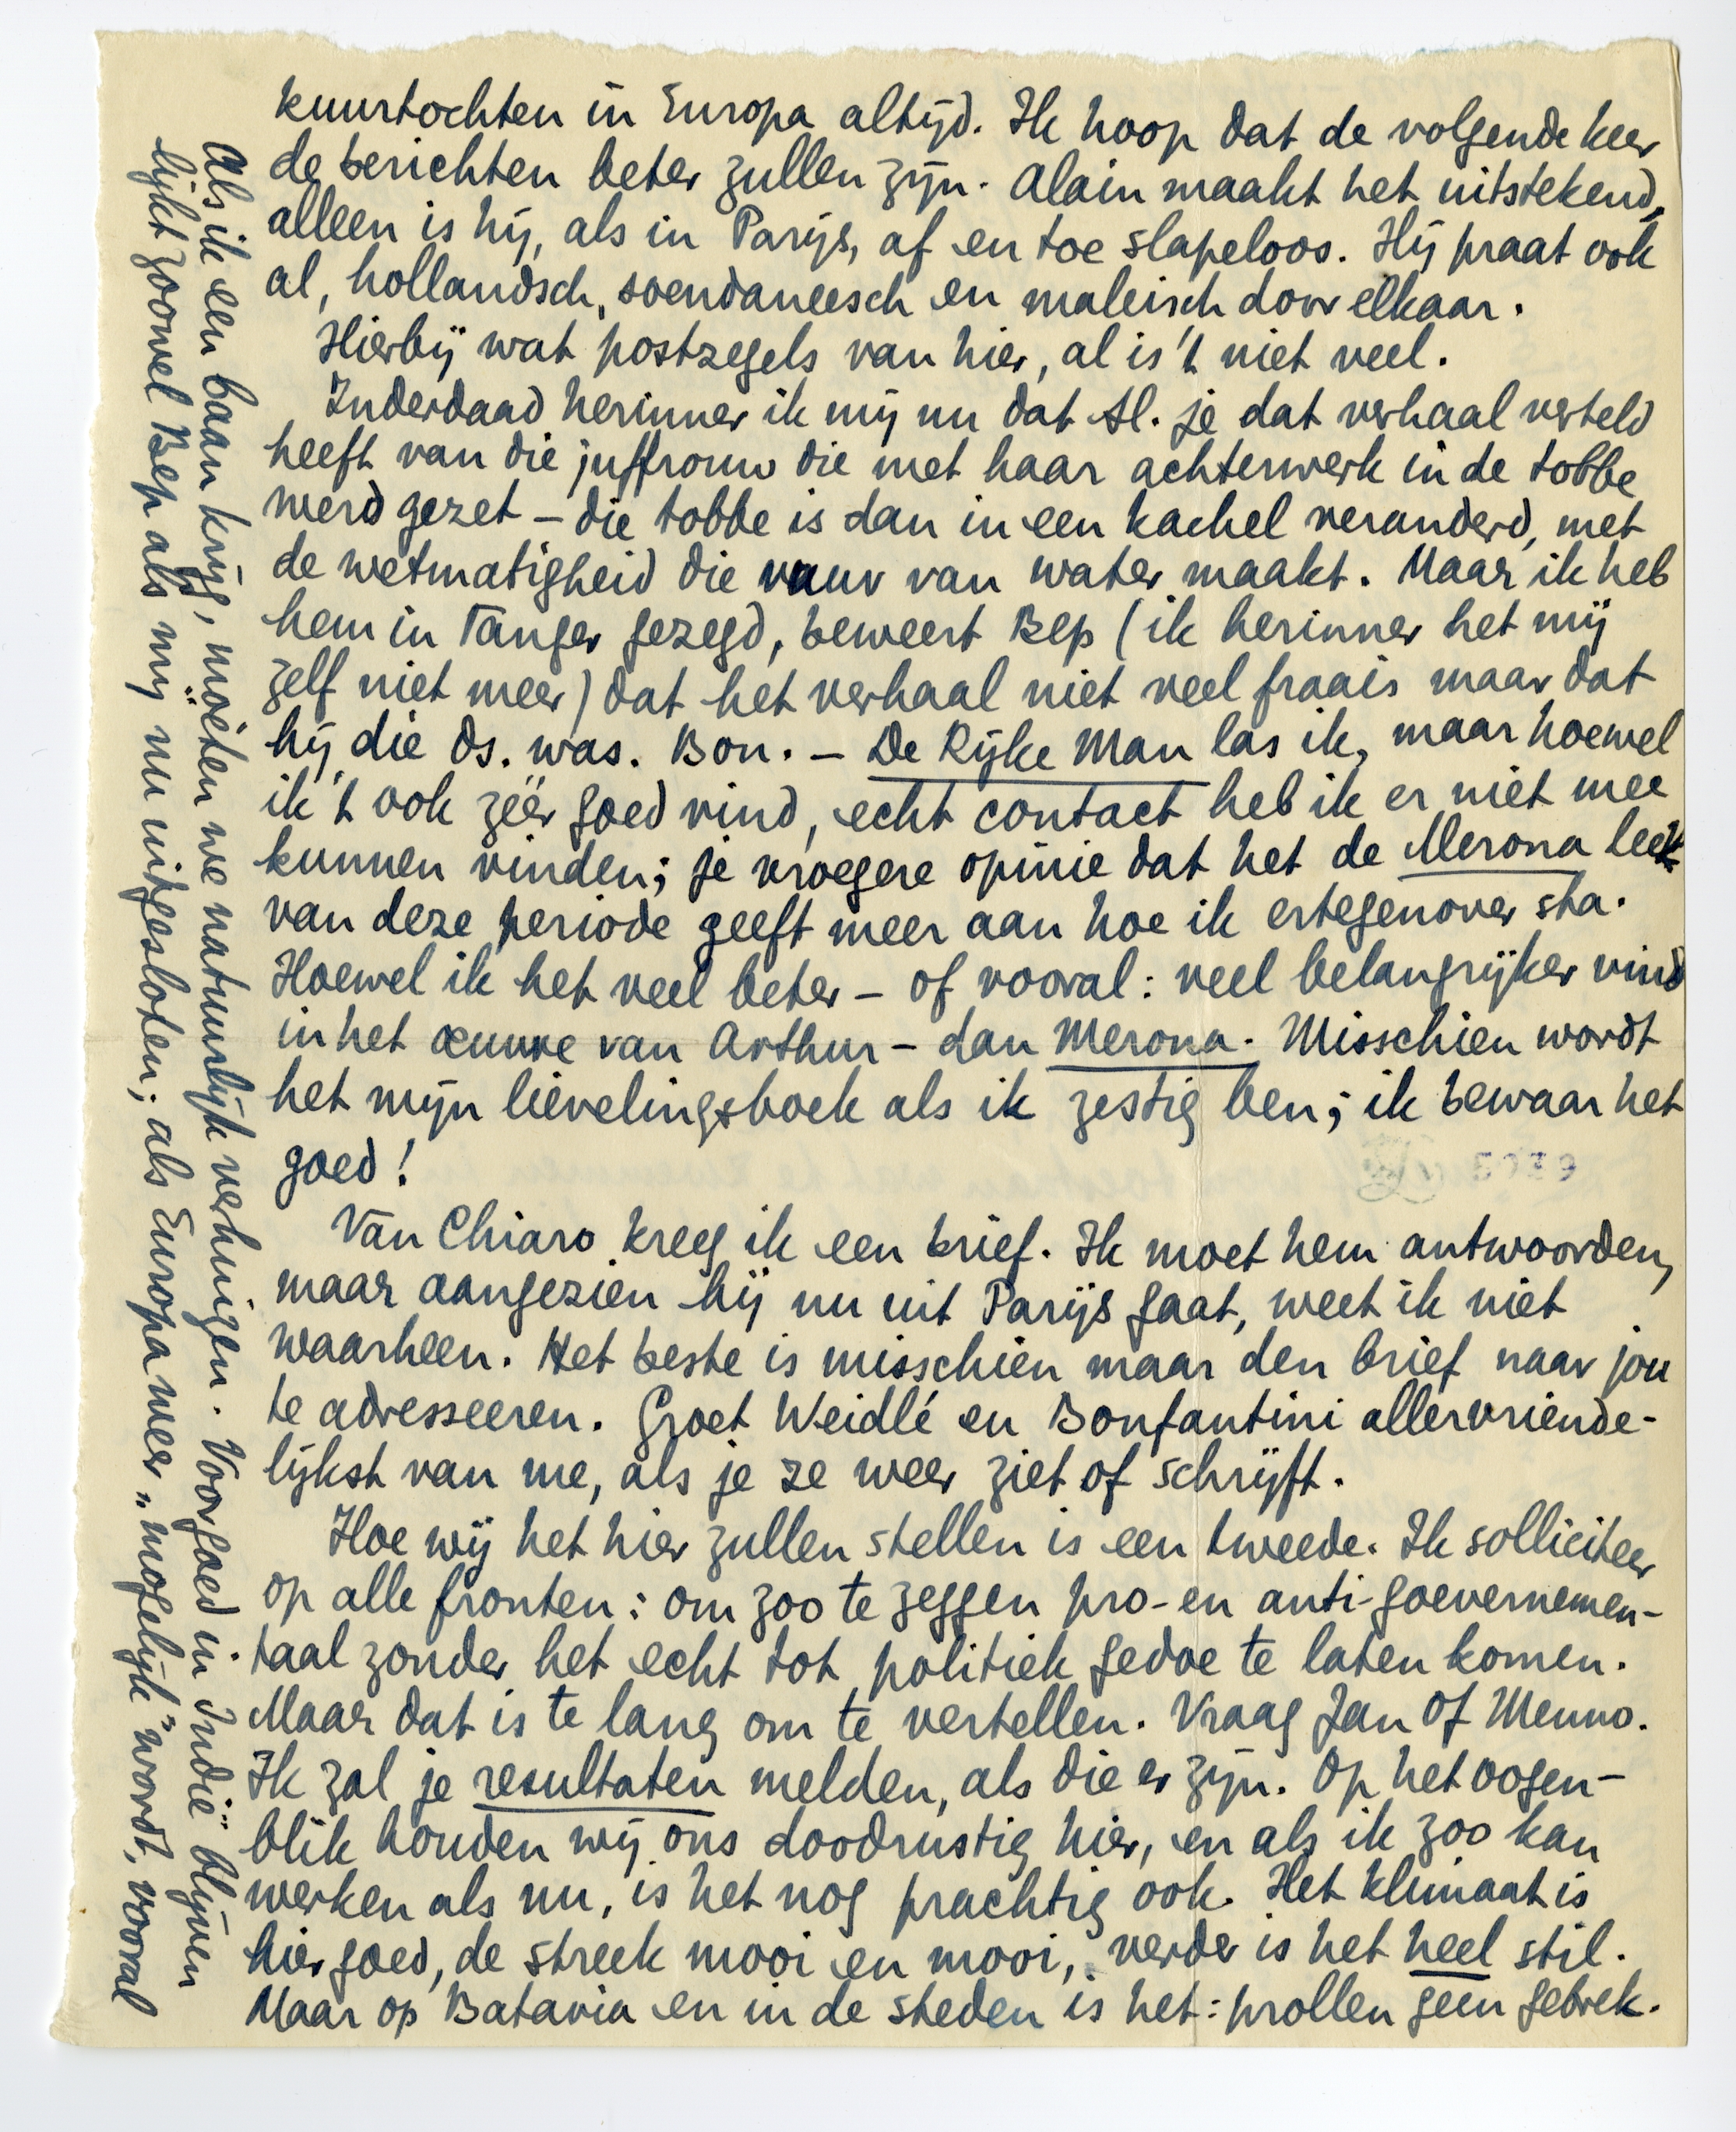 kuurtochten in Europa altijd. Ik hoop dat de volgende keer
de berichten beter zullen zijn. Alain maakt het uitstekend,
alleen is hij, als in Parijs, af en toe slapeloos. Hij praat ook
al, hollandsch, soendaneesch en maleisch door elkaar.
Hierbij wat postzegels van hier, al is 't niet veel.
Inderdaad herinner ik mij nu dat Sl. je dat verhaal verteld
heeft van die juffrouw die met haar achterwerk in de tobbe
werd gezet – die tobbe is dan in een kachel veranderd, met
de wetmatigheid die vuur van water maakt. Maar ik heb
hem in Tanger gezegd, beweert Bep (ik herinner het mij
zelf niet meer) dat het verhaal niet veel fraais maar dat
hij die ds. was. Bon. – De Rijke Man las ik, maar hoewel
ik 't ook zéér goed vind, echt contact heb ik er niet mee
kunnen vinden; je vroegere opinie dat het de Merona leek
van deze periode geeft meer aan hoe ik ertegenover sta.
Hoewel ik het veel beter – of vooral: veel belangrijker vind
in het œuvre van Arthur – dan Merona. Misschien wordt
het mijn lievelingsboek als ik zestig ben; ik bewaar het
goed!
5939
Van Chiaro kreeg ik een brief. Ik moet hem antwoorden,
maar aangezien hij nu uit Parijs gaat, weet ik niet
waarheen. Het beste is misschien maar den brief naar jou
te adresseeren. Groet Weidlé en Bonfantini allervriende-
lijkst van me, als je ze weer ziet of schrijft.
Hoe wij het hier zullen stellen is een tweede. Ik solliciteer
op alle fronten: om zoo te zeggen pro- en anti-goevernemen-
taal zonder het echt tot politiek gedoe te laten komen.
Maar dat is te lang om te vertellen. Vraag Jan of Menno.
Ik zal je resultaten melden, als die er zijn. Op het oogen-
blik houden wij ons doodrustig hier, en als ik zoo kan
werken als nu, is het nog prachtig ook. Het klimaat is
hier goed, de streek mooi en mooi, verder is het heel stil.
Maar op Batavia en in de steden is het: prollen geen gebrek.
Als ik een baan krijg, moeten we natuurlijk verhuizen. Voorgoed in Indië blijven
lijkt zoowel Bep als mij nu uitgesloten; als Europa weer „mogelijk" wordt, vooral